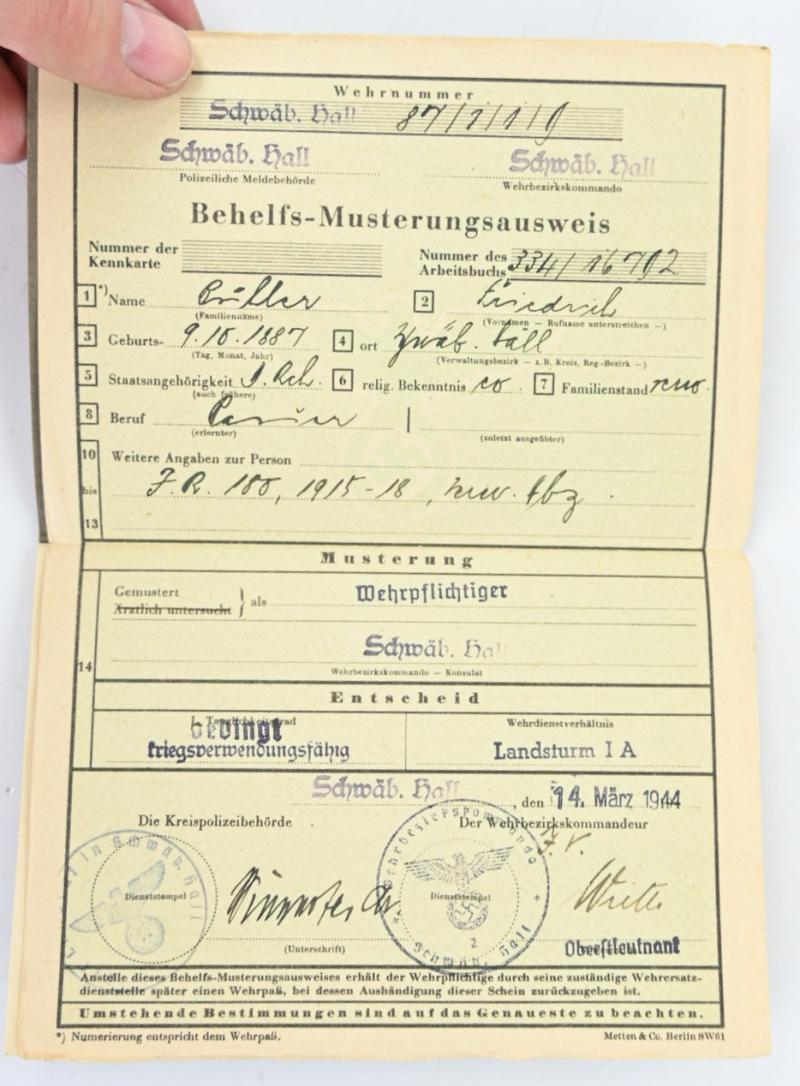 Wehrnummer
Schwäb. Hall 87/1/1/9
Schwäb. Hall Schwäb. Hall
Polizeiliche Meldebehörde Wehrbezirkskommando
Behelfs-Musterungsausweis
Nummer der Kennkarte Nummer des Arbeitsbuchs 334/16792
1 *) Name 2 Friedrich
(Familienname) (Vornamen — Rufname unterstreichen —)
3 Geburts- 9.10.1887 4 ort Schwäb. Hall
(Tag, Monat, Jahr) (Verwaltungsbezirk — z.B. Kreis, Reg.-Bezirk —)
5 Staatsangehörigkeit 6 relig. Bekenntnis 7 Familienstand
(auch frühere)
8 Beruf
(erlernter) (zuletzt ausgeübter)
10 Weitere Angaben zur Person
bis J.R. 180, 1915-18,
13
Musterung
Gemustert
Ärztlich untersucht } als Wehrpflichtiger
14 Schwäb. Hall
Wehrbezirkskommando — Konsulat
Entscheid
1. Tauglichkeitsgrad Wehrdienstverhältnis
bedingt
kriegsverwendungsfähig Landsturm I A
Schwäb. Hall, den 14. März 1944
Die Kreispolizeibehörde Der Wehrbezirkskommandeur
J.V.
in Schwäb. Hall Wehrbezirkskommando Schwäb. Hall 2
Dienststempel Dienststempel
(Unterschrift) Oberstleutnant
Anstelle dieses Behelfs-Musterungsausweises erhält der Wehrpflichtige durch seine zuständige Wehrersatz-
dienststelle später einen Wehrpaß, bei dessen Aushändigung dieser Schein zurückzugeben ist.
Umstehende Bestimmungen sind auf das Genaueste zu beachten.
*) Numerierung entspricht dem Wehrpaß. Metten & Co. Berlin SW61